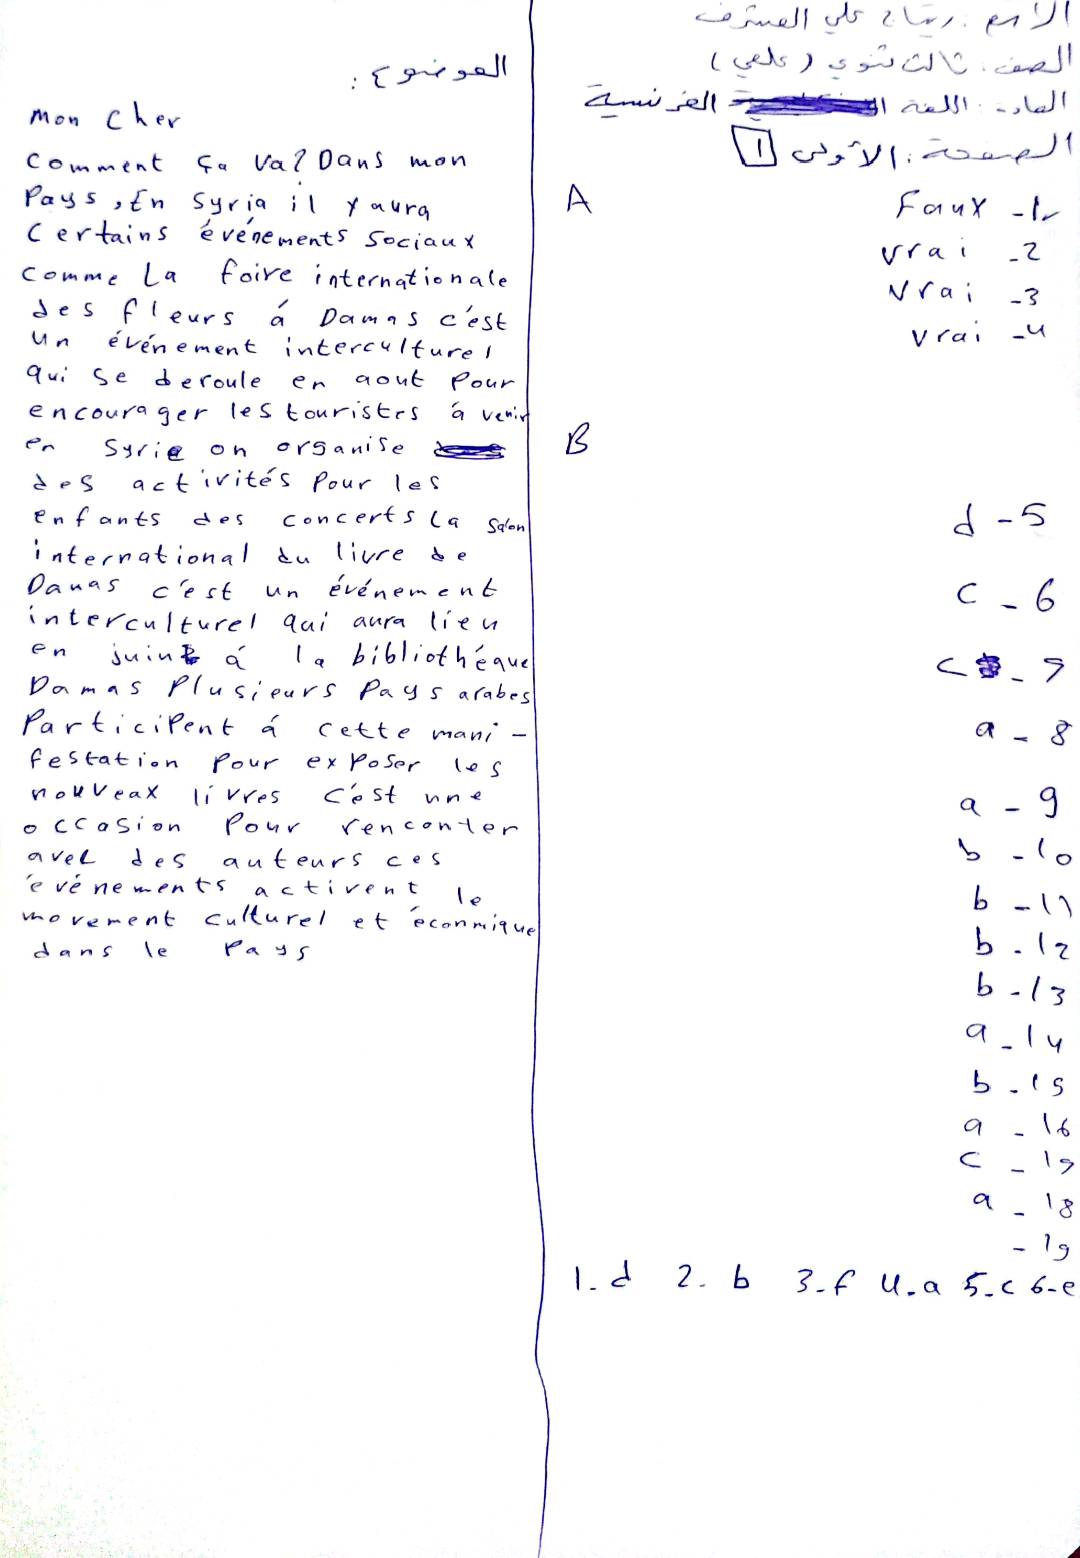 الاسم: رتاج علي المشرف
الصف: ثالث ثنوي (علمي)
المادة: اللغة الفرنسية
الصفحة: الأولى 1
A
Faux -1
vrai -2
vrai -3
vrai -4
B
d - 5
c - 6
c - 7
a - 8
a - 9
b - 10
b - 11
b - 12
b - 13
a - 14
b - 15
a - 16
c - 17
a - 18
- 19
1. d 2. b 3. f 4. a 5. c 6. e
الموضوع:
mon cher
comment ça va? Dans mon
Pays, En Syria il y aura
certains événements sociaux
comme La foire internationale
des fleurs á Damas c'est
un événement interculturel
qui se deroule en aout Pour
encourager les touristes á venir
en Syrie on organise
des activités Pour les
enfants des concerts La Salon
international du livre de
Damas c'est un événement
interculturel qui aura lieu
en juin á la bibliothéque
Damas Plusieurs Pays arabes
Participent á cette mani-
festation Pour exposer les
nouveax livres c'est une
occasion Pour renconter
avec des auteurs ces
événements activent le
movement culturel et éconmique
dans le Pays